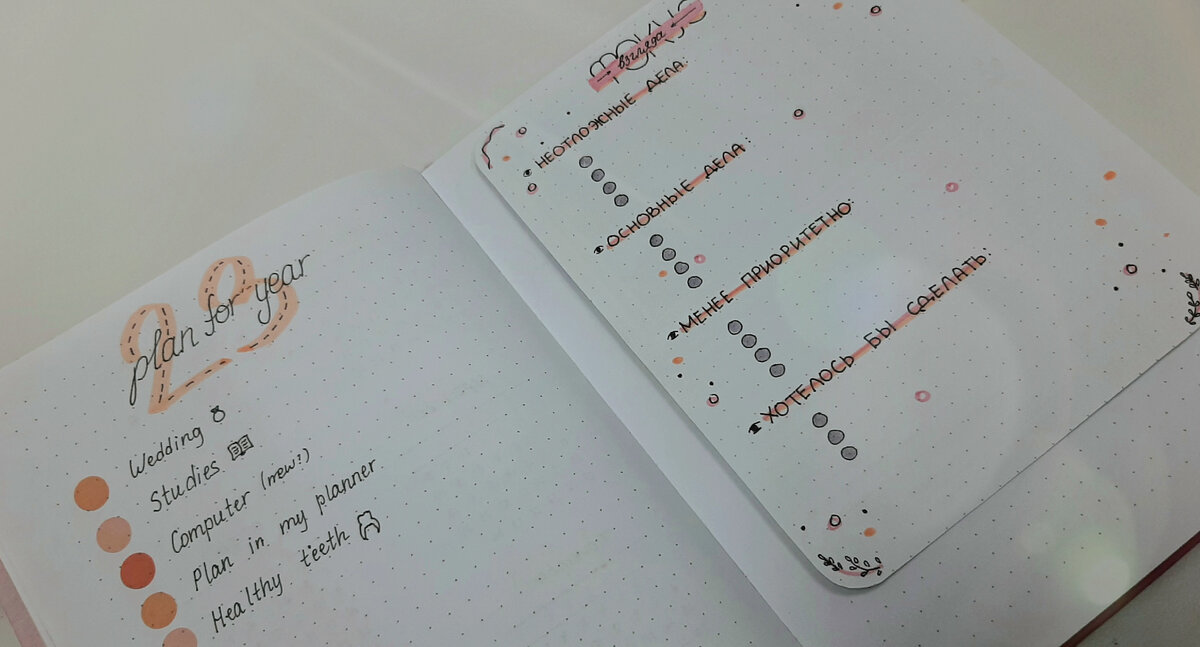 23
plan for year
Wedding
Studies
Computer (new?)
Plan in my planner
Healthy teeth
ФОКУС
взгляда
НЕОТЛОЖНЫЕ ДЕЛА:
ОСНОВНЫЕ ДЕЛА:
МЕНЕЕ ПРИОРИТЕТНО:
ХОТЕЛОСЬ БЫ СДЕЛАТЬ: